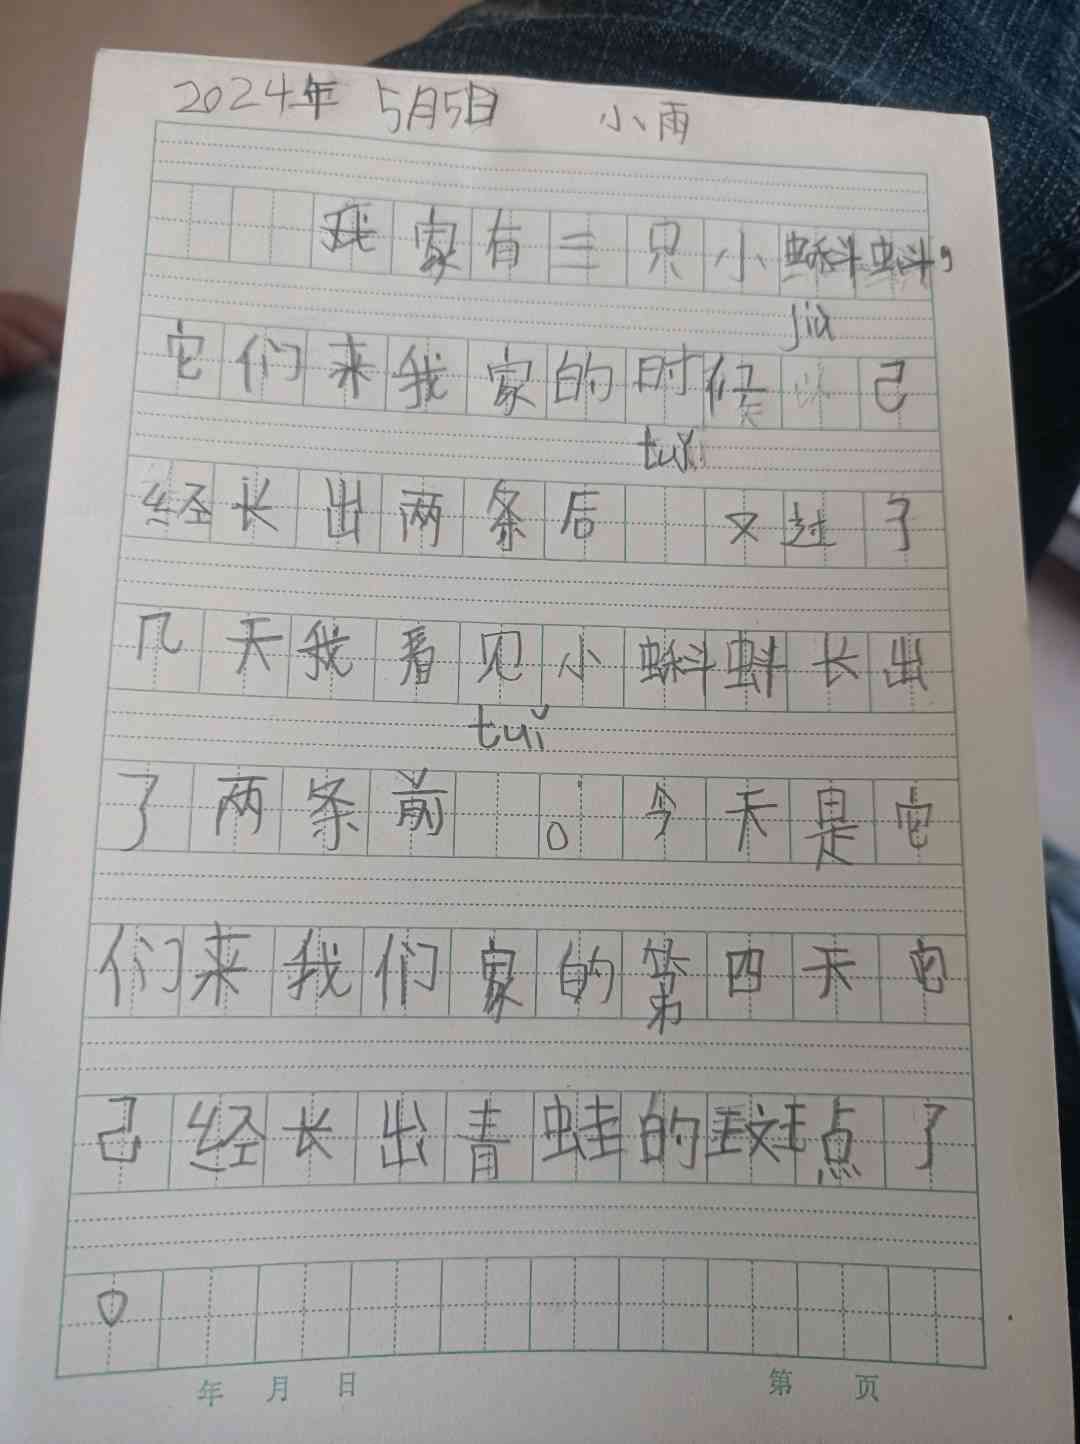 2024年 5月5日 小雨
我家有三只小蝌蚪,
jià
它们来我家的时候 己
tuǐ
经长出两条后 又过了
几天我看见小蝌蚪长出
tuǐ
了两条前 。今天是它
们来我们家的第四天它
己经长出青蛙的斑点了
。
年 月 日 第 页